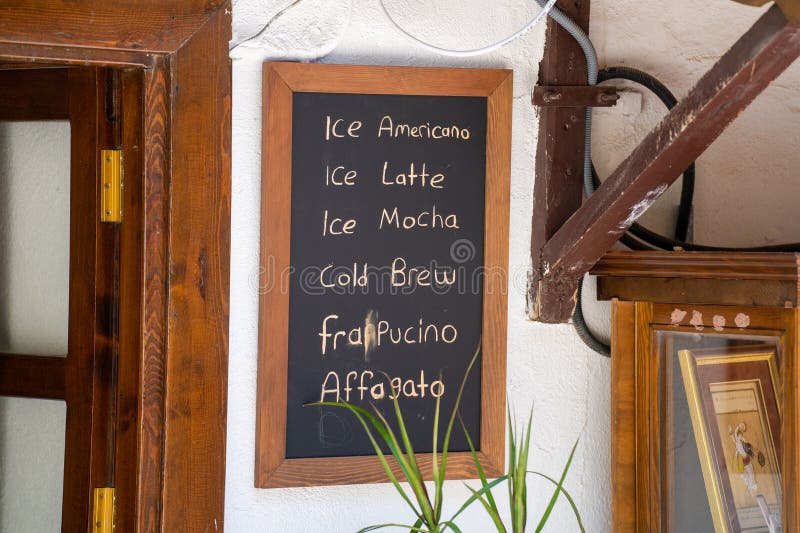 Ice Americano
Ice Latte
Ice Mocha
Cold Brew
frapPucino
Affogato
dreamstime